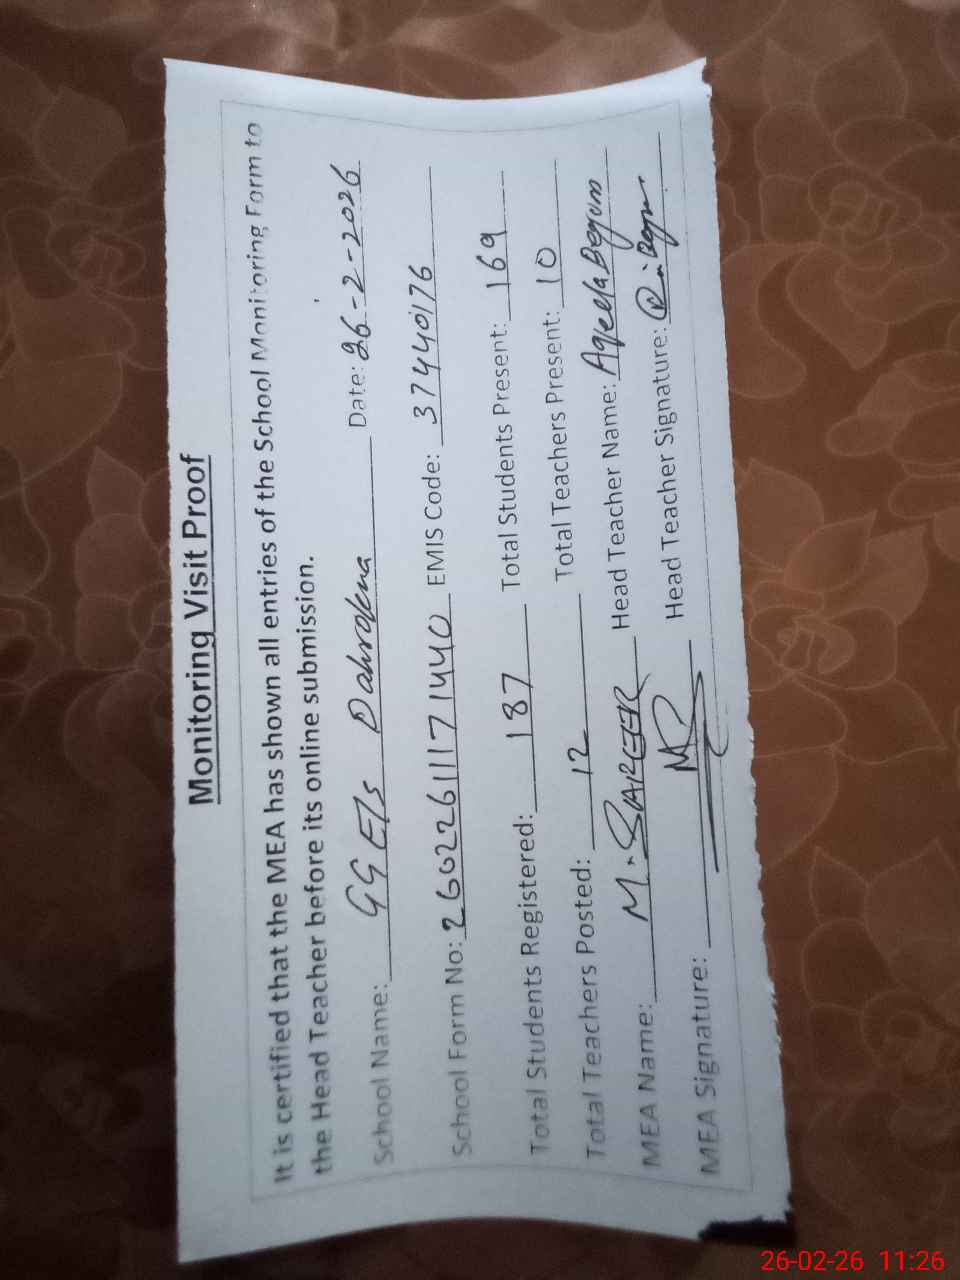 Monitoring Visit Proof
It is certified that the MEA has shown all entries of the School Monitoring Form to
the Head Teacher before its online submission.
School Name: GGES Dahrokna Date: 26-2-2026
School Form No: 26022611171440 EMIS Code: 37440176
Total Students Registered: 187 Total Students Present: 169
Total Teachers Posted: 12 Total Teachers Present: 10
MEA Name: M. SARFEER Head Teacher Name: Aqeela Begum
MEA Signature: Head Teacher Signature:
26-02-26 11:26